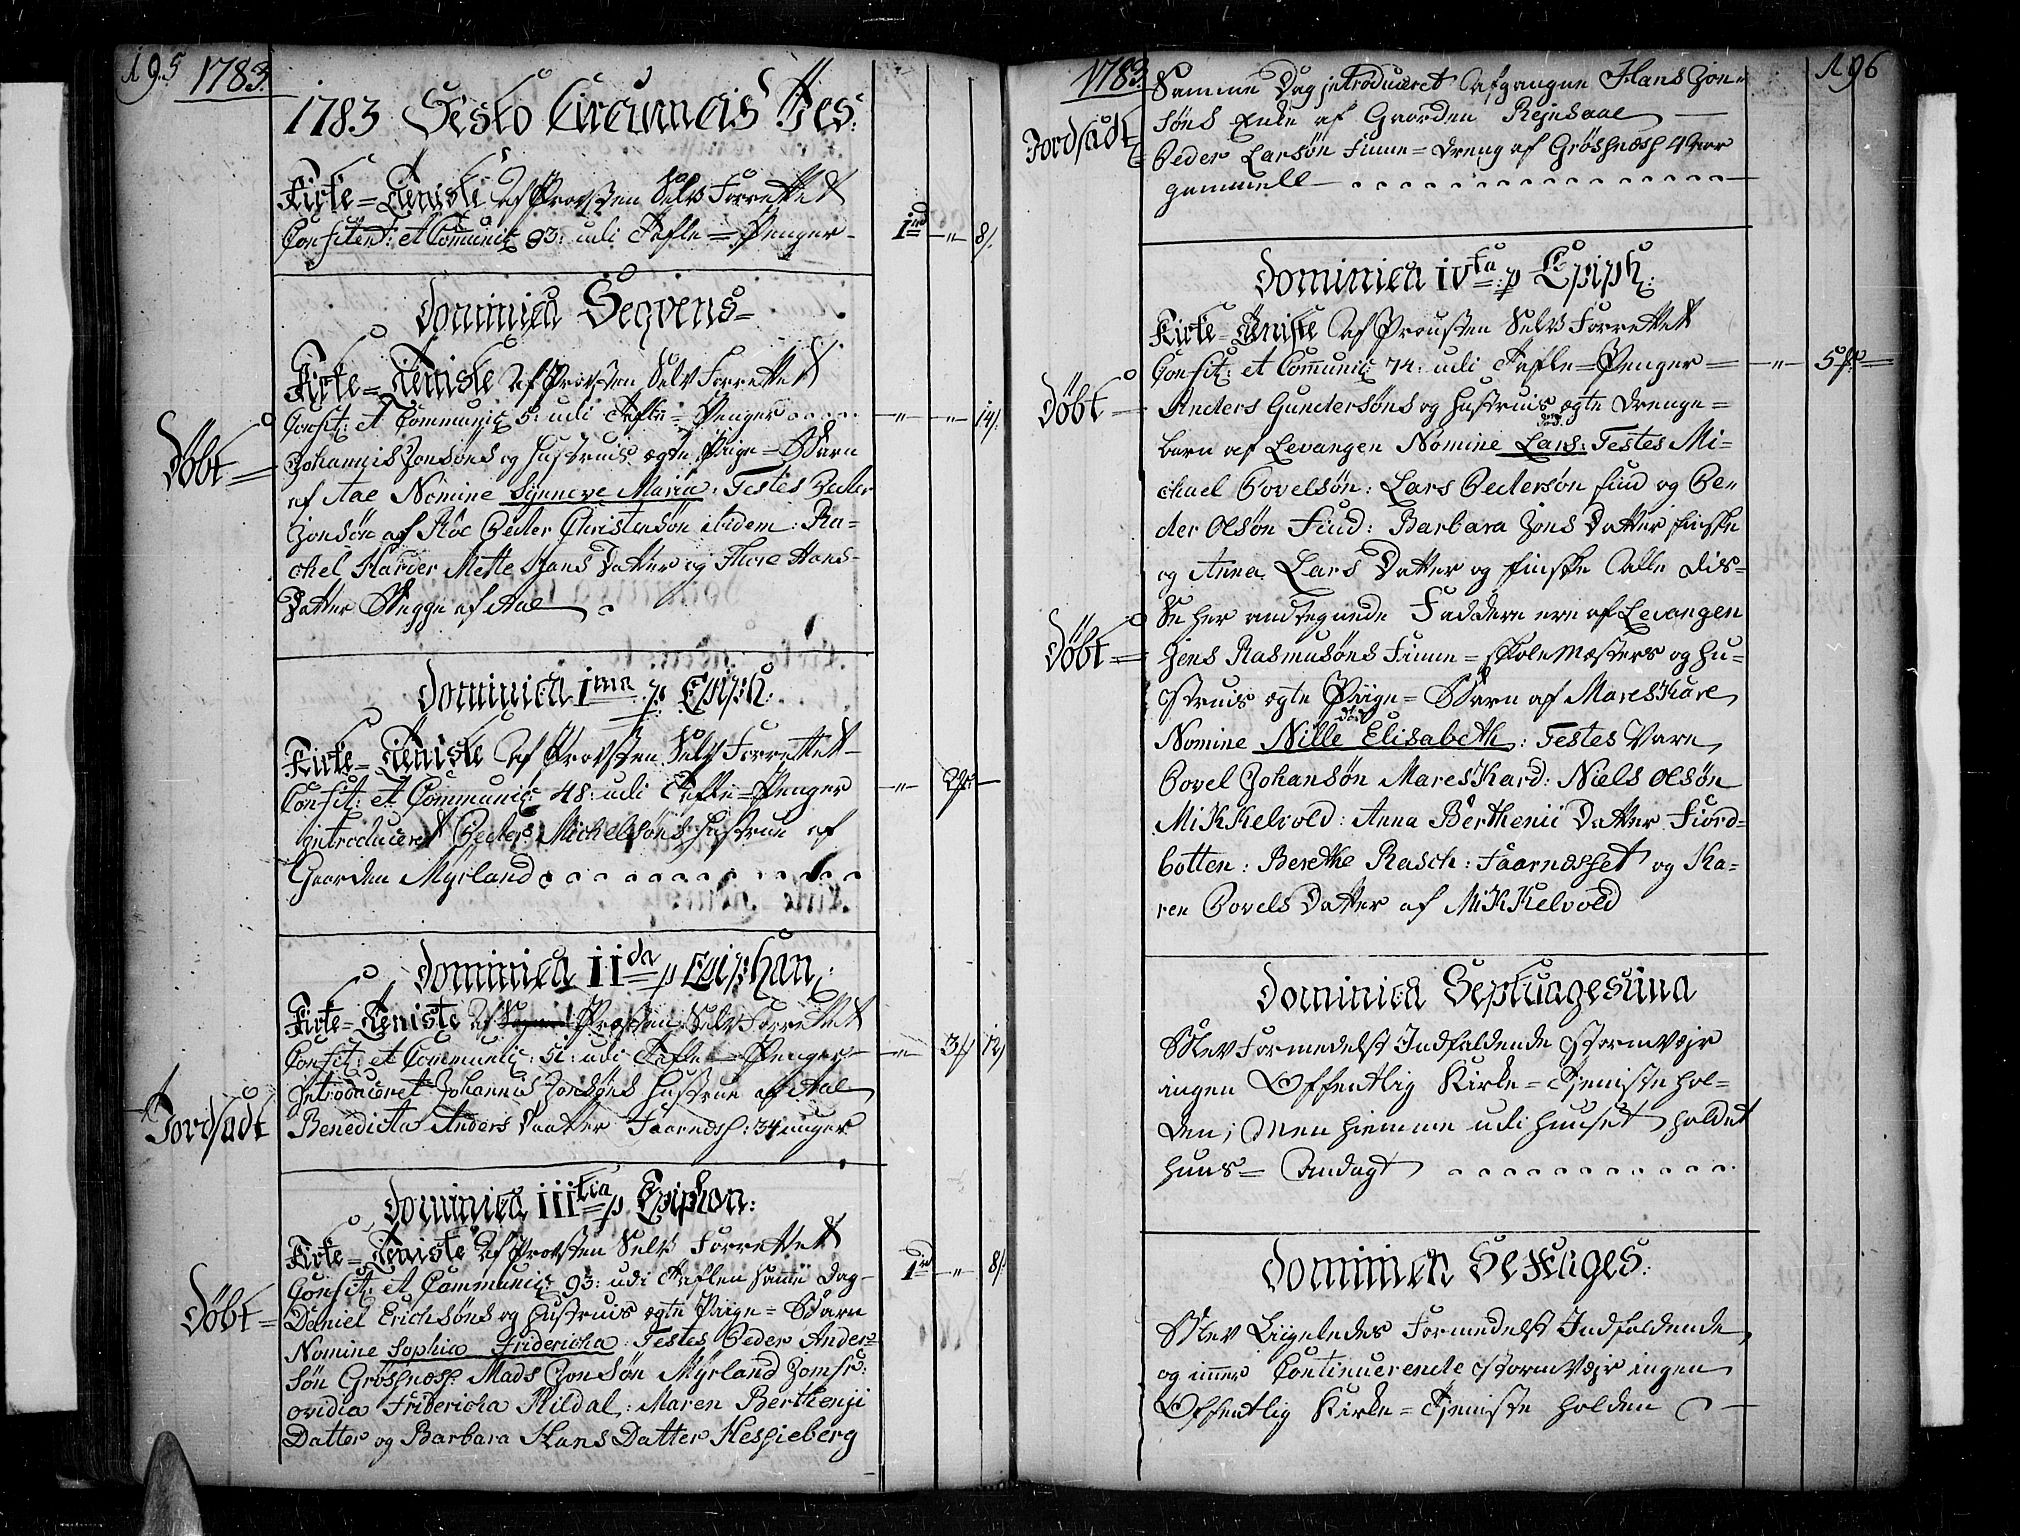 195 1783.
1783 Festo Circumcis: Jes:
Kirke=Tieniste af Provsten Selv Forrettet
Confitent: et Comunic: 93: udi Tafle=Penger 1rd " 8/.
Dominica Seqvens
Kirke=Tieniste af Provsten Selv Forrettet
Confit: et Communic: 5: udi Tafle=Penger " " 14/.
Døbt= Johannis Jonsøns og Hustrues ægte Piige=Barn
af Aae Nomine Synneve Maria: Testes Peder
Jonsøn af Röe Peder Christensøn ibidem: Ra-
chel Harder Mette Hans Datter og Thore Hans-
Datter Begge af Aae
Dominica Ima p Epiph:
Kirke=Tieniste af Provsten Selv Forrettet
Confit: et Communic: 48: udi Tafle=Penger "
Introduceret Peder Michelsøns Hustrue af
Gaarden Myrland
Dominica IIda p Epiphan:
Kirke=Tieniste af Provsten Selv Forrettet
Confit: et Communic: 51: udi Tafle=Penger " 3/ 12/
Introduceret Johannis Jonsøns Hustrue af Aae
Jordfæst Benedicta Anders Daatter Faarnæss: 34 uger
Dominica IIItia p Epiphan:
Kirke=Tieniste af Provsten Selv Forrettet
Confit: et Communic: 93: udi Taflen samme Dag 1rd " 8/.
Døbt= Daniel Erichsøns og Hustrues ægte Piige=Barn
Nomine Sophia Fridericha: Testes Peder Ander-
søn Grøssnæss: Mads Jonsøn Myrland Jomfr:
Ovidia Fridericha Hildal: Maren Berthenji
Datter og Barbara Hans Datter Hessieberg
1783. 196
Samme Dag introduceret Afgangne Hans Jon-
søns Enke af Gaarden Rejnsaae
Jordfæst Peder Larsøn Finne=Dreng af Grøssnæss 4 Aar
gammell
Dominica IVta p Epiph:
Kirke=Tieniste af Provsten Selv Forrettet
Confit: et Communic: 74: udi Tafle=Penger " 5
Døbt Anders Gundersøns og Hustrues ægte Drenge=
barn af Levangen Nomine Lars: Testes Mi-
død
chael Povelsøn: Lars Pedersøn Find og Pe-
der Olsøn Find: Barbara Jons Datter Finske
og Anna Lars Datter og Finske Alle dis-
se her andtegnede Faddere ere af Levangen
Døbt= Jens Rasmusøns Finne=Skole Mæsters og Hu-
strues ægte Piige=Barn af Mareskare
død
Nomine Nille Elisabeth: Testes Vare
Povel Johansøn Mareskard: Niels Olsøn
Mikkelvold: Anna Berthenii Datter Fiord-
botten: Berethe Rasch: Faarnæsset og Ka-
ren Povels Datter af Mikkelvold
Dominica Septuagesima
Blev Formedelst Indfaldende Stormvejr
ingen Offentlig Kirke=Tjeniste hol-
den; Men hiemme udi Huuset holdet
Huus=Andagt
Dominica Sexages:
Blev Liigeledes Formedelst Indfaldende
og immer Continuerende Stormvejr ingen
Offentlig Kirke=Tjeniste holden